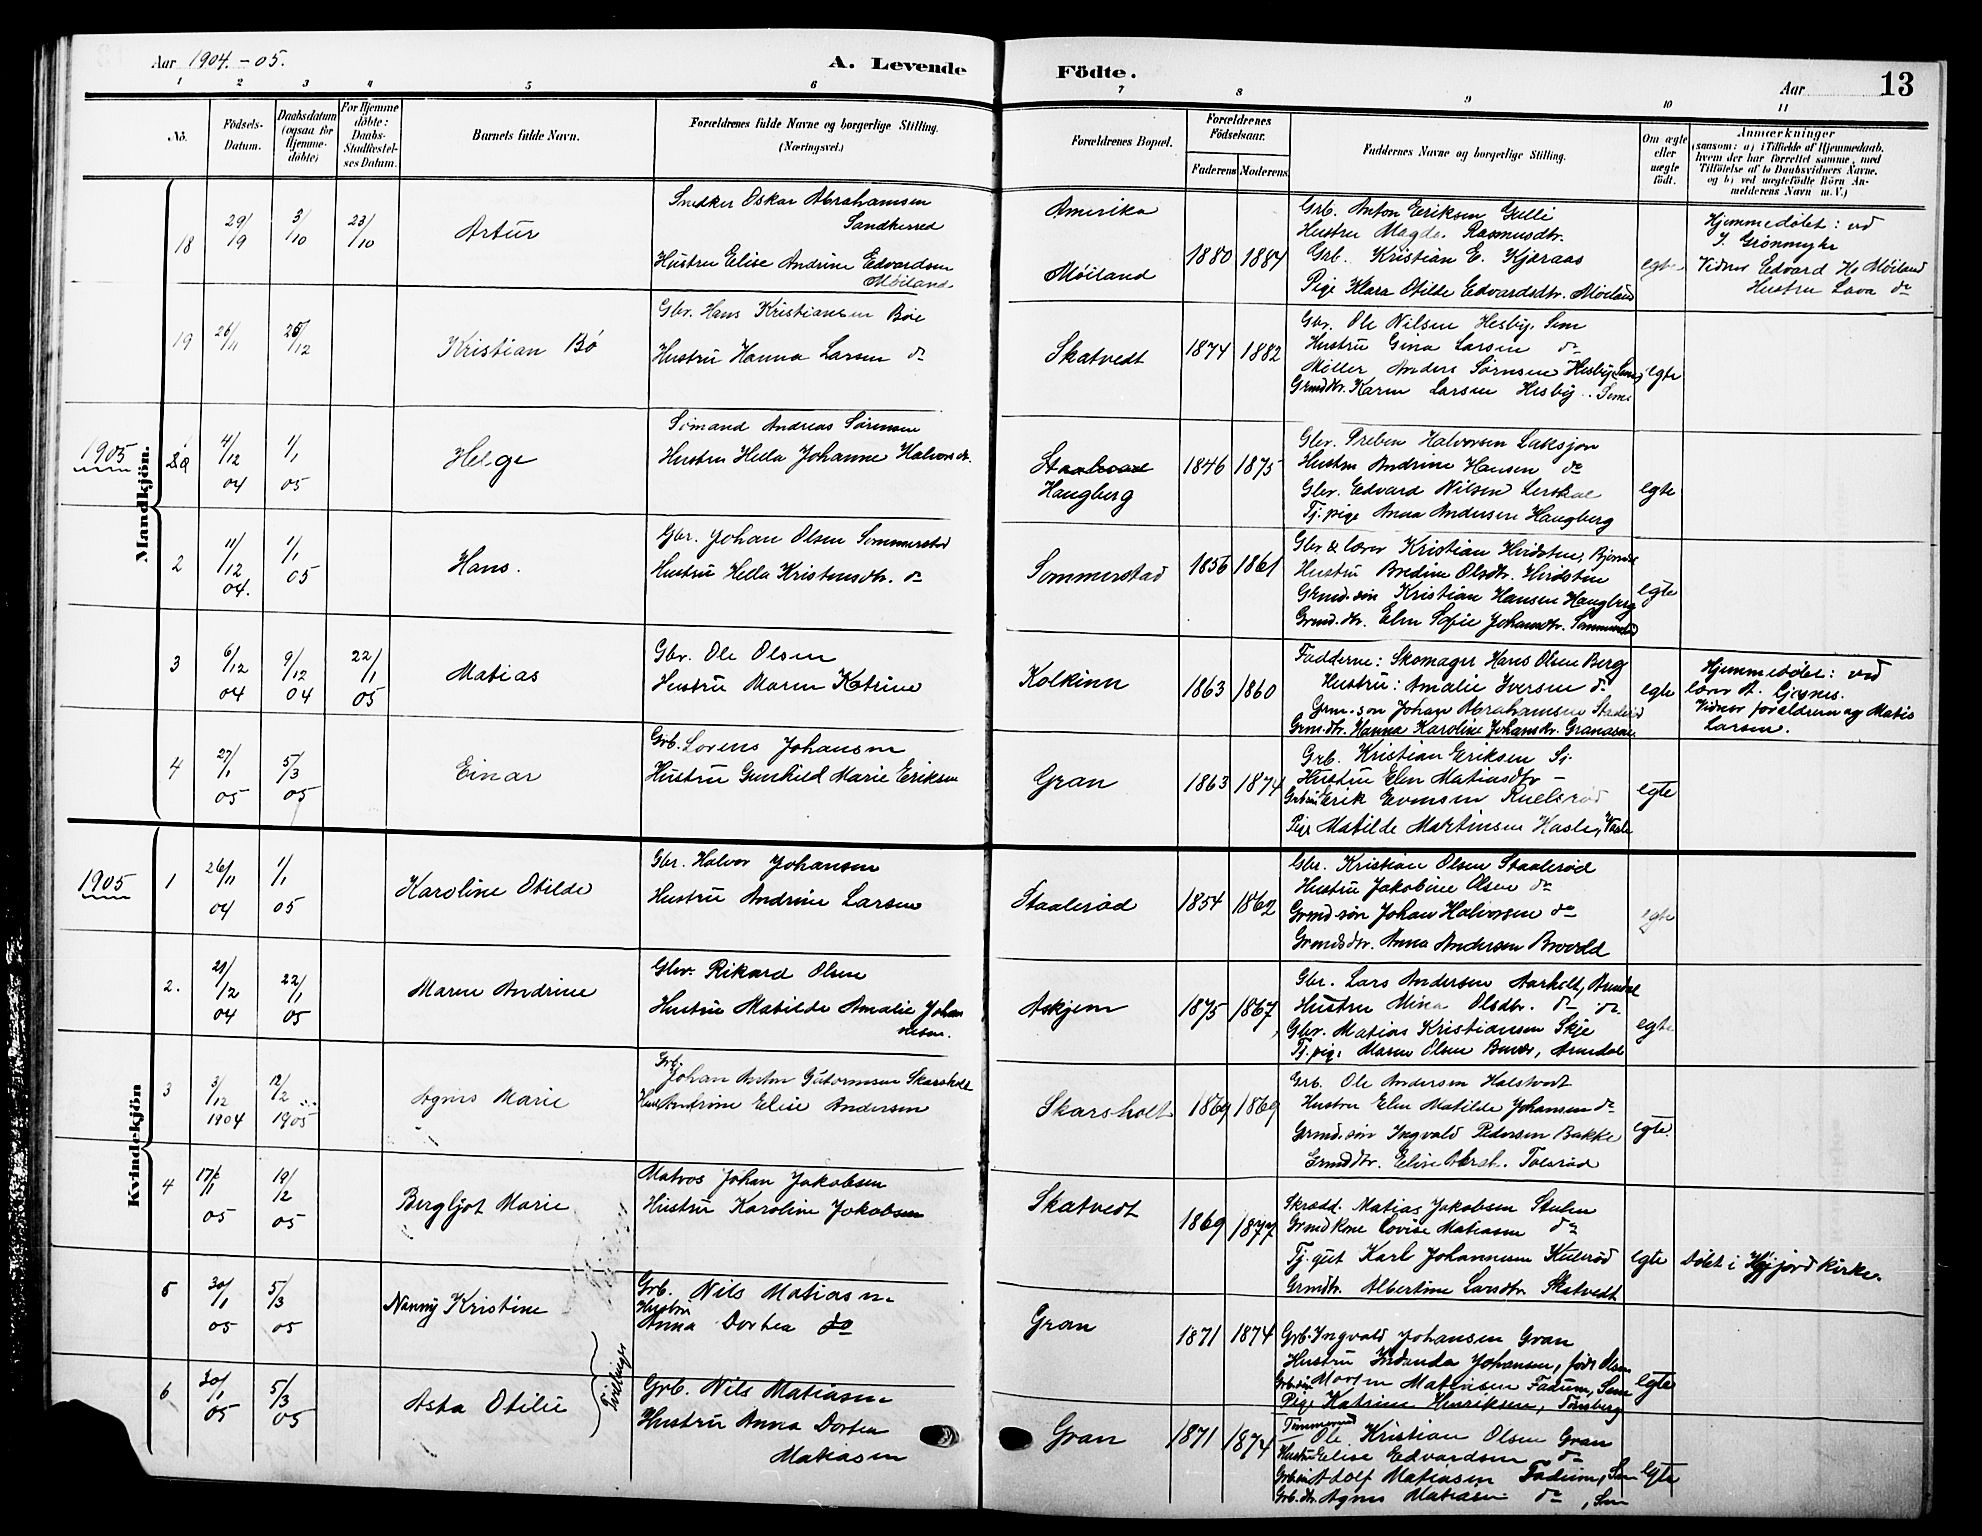 Aar 1904.-05.
A. Levende Födte.
Aar 13
1 2 3 4 5 6 7 8 9 10 11
No. Födsels-Datum. Daabsdatum (ogsaa for Hjemme-döbte) For Hjemme döbte: Daabs-Stadfæstel-ses Datum. Barnets fulde Navn. Forældrenes fulde Navne og borgerlige Stilling. (Næringsvei.) Forældrenes Bopæl. Forældrenes Födselsaar. Faderens Moderens Faddernes Navne og borgerlige Stilling. Om ægte eller uægte födt. Anmærkninger (saasom: a) i Tilfælde af Hjemmedaab, hvem der har forrettet samme, med Tilföielse af to Daabsvidners Navne, og b) ved uægtefödte Börn An-melderens Navn m. V.)
Mandkjön.
18 29/9 3/10 23/10 Artur
Snedker Oskar Abrahamsen
Sandhered
Hustru Elise Andrine Edvardsen
Møiland
Amerika
Møiland
1880 1884
Grb. Anton Eriksen Gjelli
Hustru Magda Rasmusdtr.
Grb. Kristian E. Kjæraas
Pige Klara Otilde Edvardsdtr. Møiland
egte
Hjemmedøbt: ved
J. Grønmyhr
Vidner Edvard H. Møiland
Hustru Lava do
19 26/11 26/12 Kristian Bø
Gbr. Hans Kristiansen Bøe
Hustru Hanna Larsen do
Skatvedt
1874 1882
Gbr. Ole Nilsen Hesby, Sem
Hustru Gina Larsen do
Møller Anders Sørnsen Hesby, Sem
Grmddtr. Karen Larsen Hesby .. Sem.
egte
1905
4/12 04 1/1 05 Helge
Sømand Andreas Sørensen
Hustru Hella Johanne Halvorsdt.
Haugberg
1846 1875
Gbr. Preben Halvorsen Laksjøn
Hustru Andrine Hansen do
Gbr. Edvard Nilsen Lerskal
Tj. pige Anna Andersen Haugberg
egte
2 11/12 04. 1/1 05 Hans.
Gbr. Johan Olsen Sommerstad
Hustru Hella Kristensdtr. do
Sommerstad
1856 1861
Gbr & lærer Kristian Hvidsten,
Hustru Bredine Olsdtr. Hvidsten
Grmd. søn Kristian Hansen Haugberg
Grmd. dtr. Elen Sofie Johansdtr. Sommerstad
egte
3 6/12 04 9/12 04 22/1 05 Matias
Gbr. Ole Olsen
Hustru Maren Katrine
Kolkinn
1863 1860
Fadderne: Skomager Hans Olsen Berg
Hustru: Amalie Iversen do
Grm. søn Johan Abrahamsen
Grmd. dtr. Hanna Karoline Johansdtr. Granaasen
egte
Hjemmedøbt: ved
lærer A. Gjesnes.
Vidner forældrene og Matis
Larsen.
4 27/1 05 5/3 05 Einar
Grb. Lorens Johansen
Hustru Gunhild Marie Eriksen
Gran
1863 1874
Grb. Kristian Eriksen Sj.
Hustru Elen Matiasdtr -
Grbsøn Erik Evensen Ruelsrød
Pige Matilde Martinsen Hasle, Vaale
egte
1905
Kvindekjön
1 26/11 04 1/1 05 Karoline Otilde
Gbr. Halvor Johansen
Hustru Andrine Larsen
Staalerød
1854 1862
Gbr. Kristian Olsen Staalerød
Hustru Jakobine Olsen do
Grmd. søn Johan Halvorsen do
Grmdsdtr. Anna Andersen
egte
2. 21/12 04 22/1 05 Maren Andrine
Gbr. Rikard Olsen
Hustru Matilde Amalie Johan
nesen.
Askjem
1875 1867
Gbr. Lars Andersen Aarholt, Arendal
Hustru Mina Olsdtr. do do
Gbr. Matias Kristiansen Skje
Tj. pige Maren Olsen , Arndal
egte
3 3/12 1904 12/2 1905 Agnes Marie
Grb. Johan Anton Gutormsen Skarsholt
Hust. Andrine Elise Andersen
Skarsholt
1869 1869
Grb. Ole Andersen Holstvedt
Hustru Elen Matilde Johansen do
Grmd. søn Ingvald Pedersen Bakke
Grmddtr. Elise Tolsrød
egte.
4 17/1 05 19/2 05 Bergljot Marie
Matros Johan Jakobsen
Hustru Karoline Jakobsen
Skatvedt
1869 1877
Skrædd. Matias Jakobsen Stulen
Grmd kone Lovise Matiasen do
Tj. gut Karl Johannesen Kullerød
Grmdtr. Albertine Larsdtr. Skatvedt
egte
Døbt i Høijord kirke.
5 30/1 05 5/3 05 Nanny Kristine
Tvillinger
Grb. Nils Matiasen
Hustru
Anna Dortea do
Gran
1871 1874
Grb. Ingvald Johansen Gran
Hustru Indianda Johansen, født Olsen
Grb.søn Maren Matiasen Fadum, Sem
Pige Katrine Henriksen, Tønsberg
egte
6 30/1 05 5/3 05 Asta Otilie
Grb. Nils Matiasen
Hustru Anna Dortea
Matiasen
Gran
1871 1874
Tømmermd
Ole Kristian Olsen Gran
Hustru Elise Edvardsen do
Grb.søn Adolf Matiasen Fadum, Sem
Grb. dtr. Agnes Matiasen do, Sem
egte